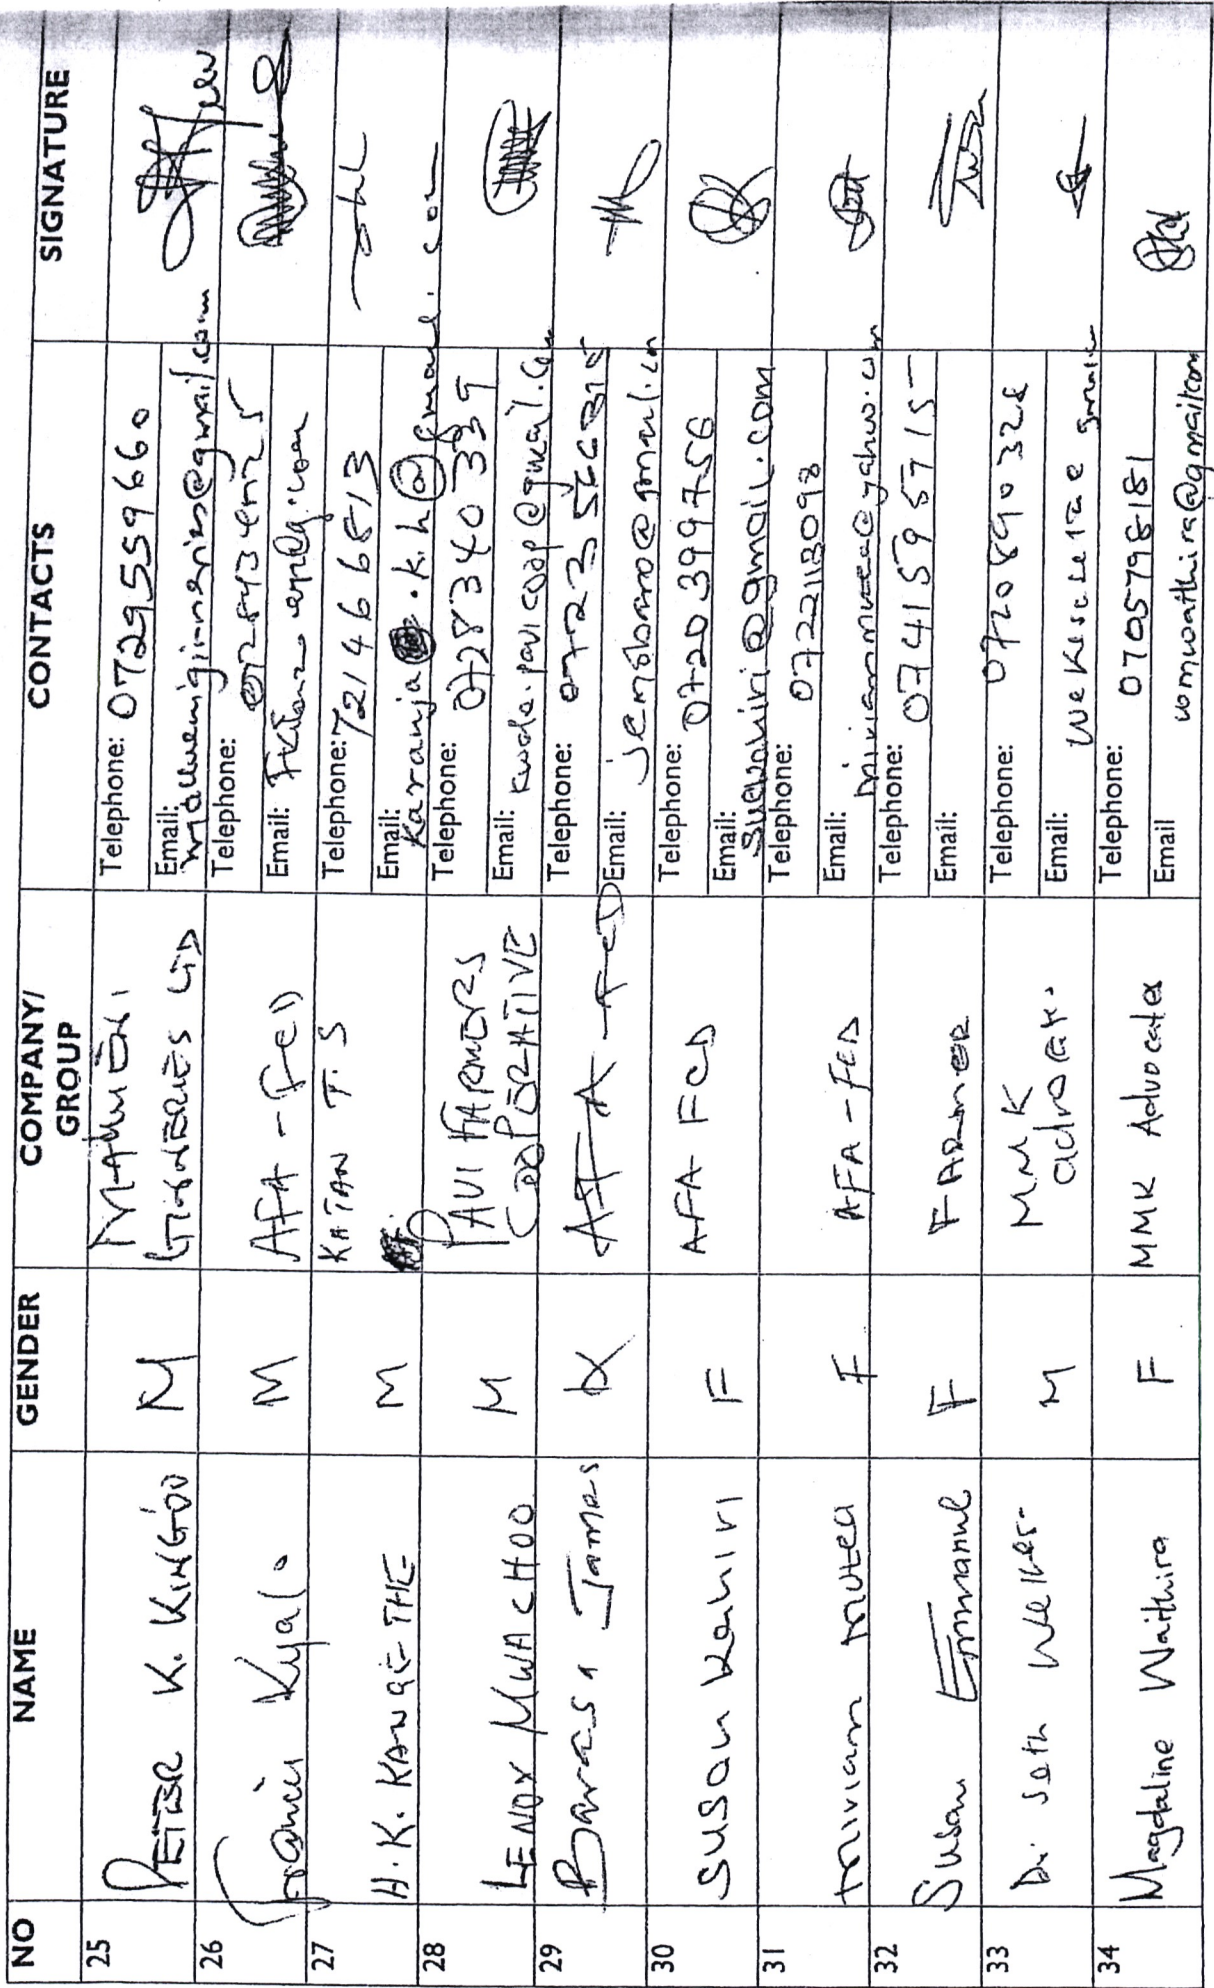 NO NAME GENDER COMPANY/ GROUP CONTACTS SIGNATURE
25 PETER K. KINGÓO M MALUENI GINNERIES LTD Telephone: 0729559660
Email: malueniginneries@gmail.com
26 Francis Kyalo M AFA - FCD Telephone:
Email:
27 H. K. KANGETHE M KATAN T.S Telephone: 721466513
Email: Karanja .k.h@gmail.com
28 LENOX MWACHOO M PAVI FARMERS COOPERATIVE Telephone: 0728340339
Email: kwale.pavicoop@gmail.com
29 Barasa James AFA - FCD Telephone:
Email:
30 SUSAN Kahiri F AFA FCD Telephone: 0720399756
Email: suekahiri@gmail.com
31 Miriam Mutea F AFA - FCD Telephone: 0722113098
Email: miriammutea@yahoo.com
32 Susan Emmanuel F FARMER Telephone: 0741595715
Email:
33 Dr. Seth M MMK Telephone: 0720890328
Email:
34 Magdaline Waithira F MMK Advocates Telephone: 0705798181
Email